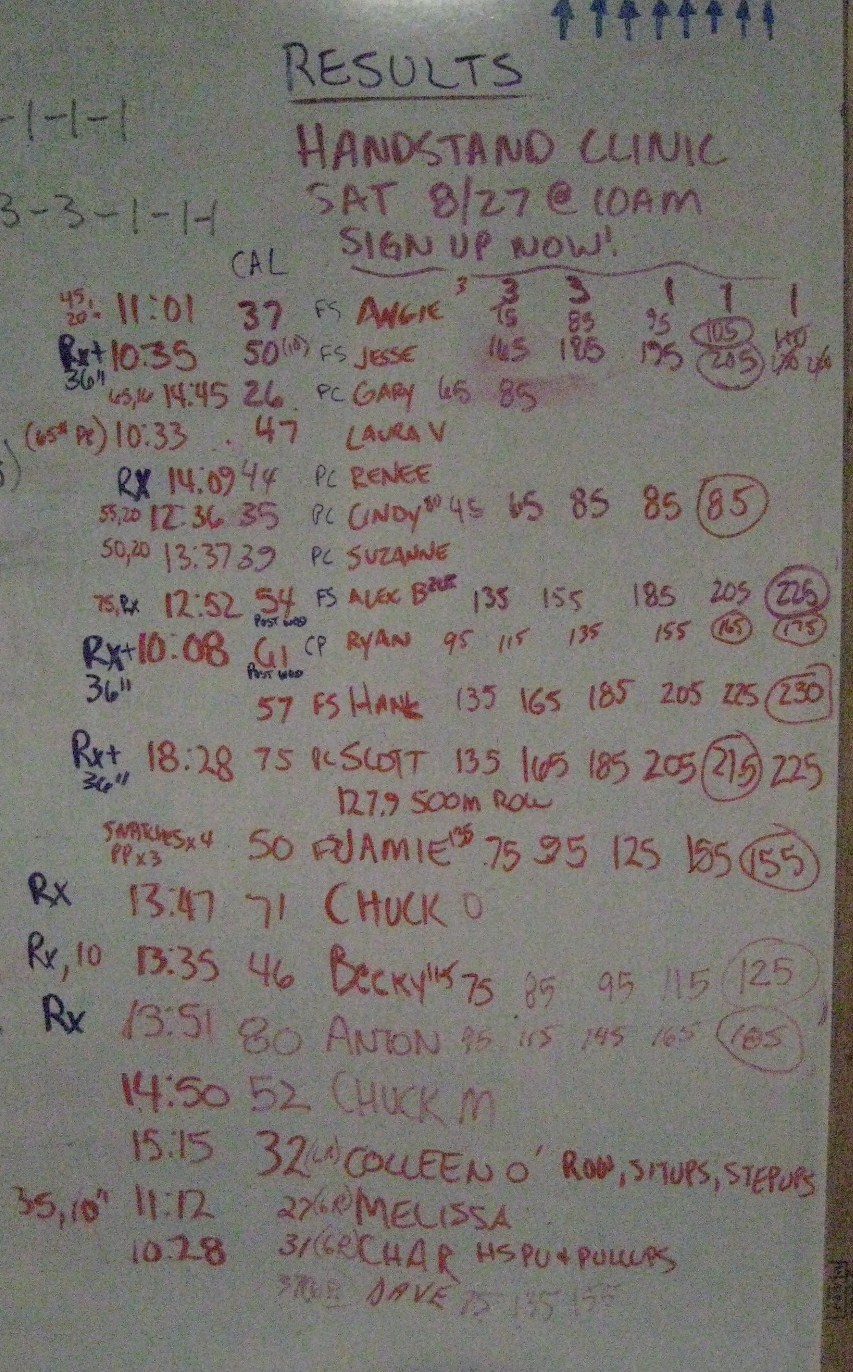 RESULTS
-1-1-1
HANDSTAND CLINIC
3-3-1-1-1
SAT 8/27 @ 10AM
SIGN UP NOW!
CAL
3 3 3 1 1 1
45, 20" 11:01 37 FS ANGIE 75 85 95 105
Rx+ 10:35 50 FS JESSE 165 185 195 205
36"
14:45 26 PC GARY 65 85
(65# PC) 10:33 47 LAURA V
RX 14:09 44 PC RENEE
55,20 12:36 35 PC CINDY 80 45 65 85 85 85
50,20 13:37 39 PC SUZANNE
75, Rx 12:52 54 FS ALEX B 135 155 185 205 225
POST WOD
Rx+ 10:08 61 CP RYAN 95 115 135 155 165 175
36" POST WOD
57 FS HANK 135 165 185 205 225 230
Rx+ 18:28 75 PC SCOTT 135 165 185 205 215 225
36"
1:27.9 500M ROW
SNATCHES x 4
PP x 3 50 FS JAMIE 135 75 95 125 155 155
Rx 13:47 71 CHUCK O
Rx, 10 13:35 46 BECKY 115 75 85 95 115 125
Rx 13:51 80 ANTON 95 115 145 165 185
14:50 52 CHUCK M
15:15 32 COLLEEN O' ROW, SITUPS, STEPUPS
35, 10" 11:12 27(6R) MELISSA
10:28 31(6R) CHAR HSPU & PULLUPS
DAVE 75 135 155